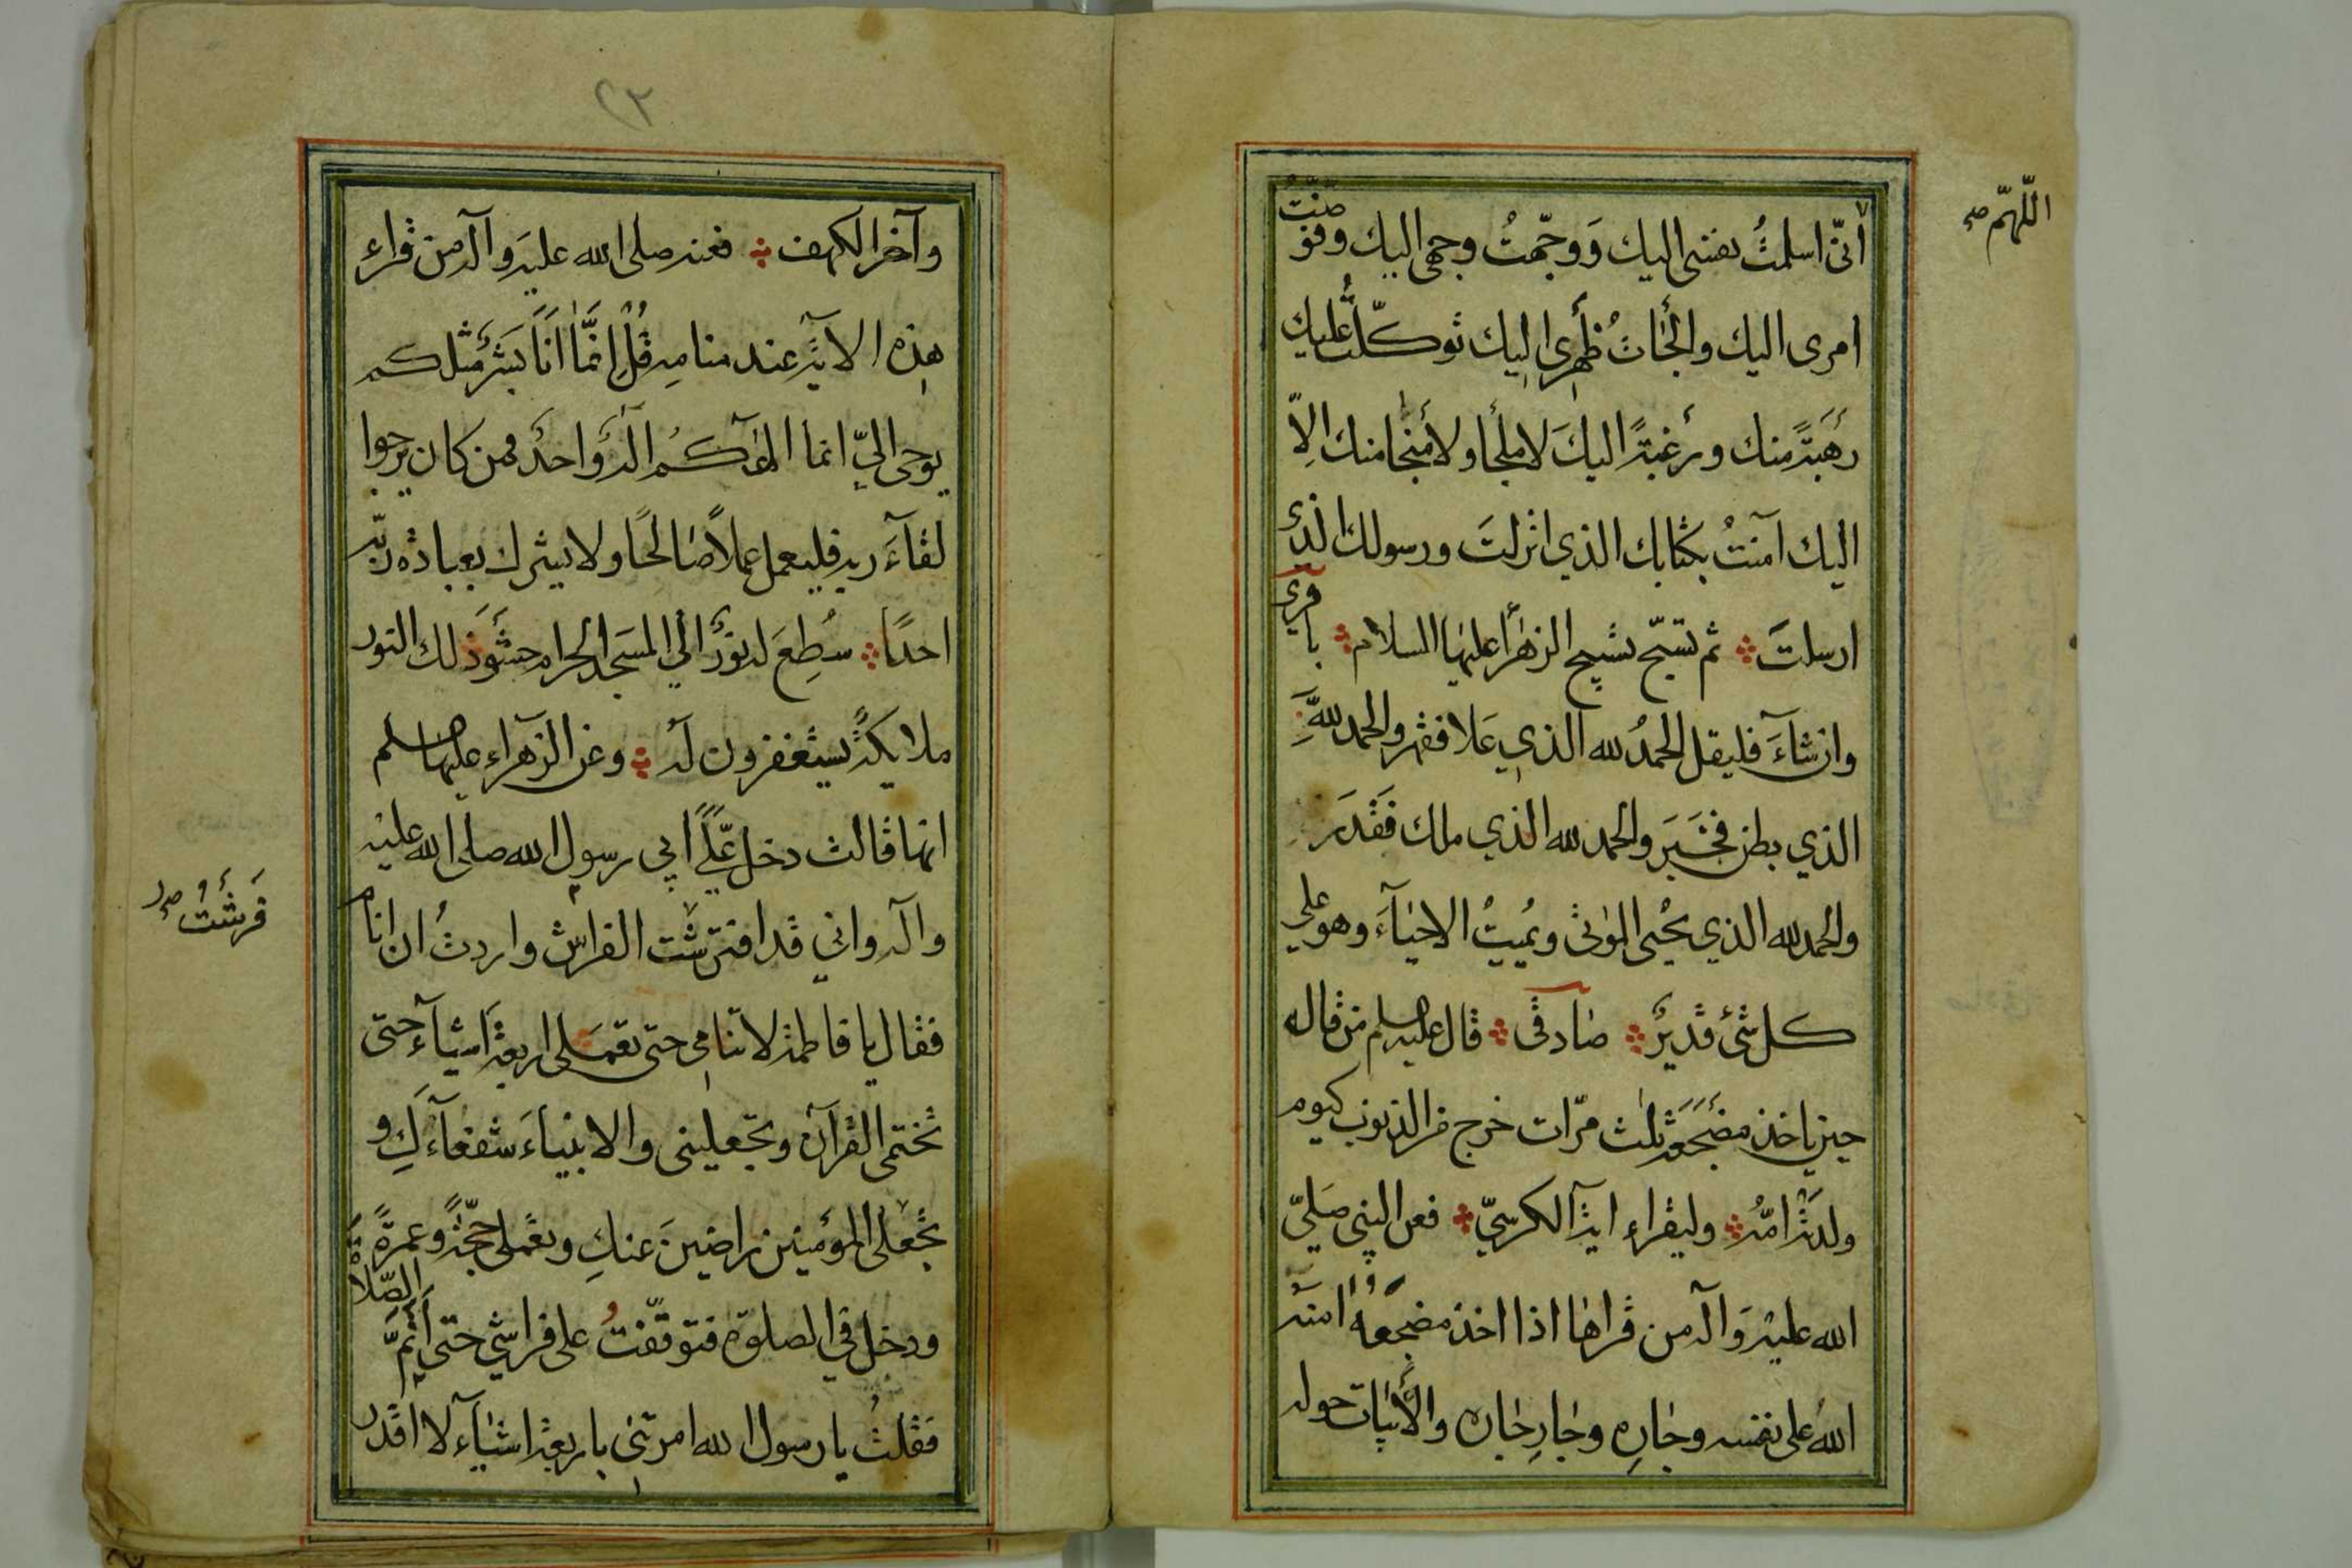 اللّهمّ صح
أنّى اسلمتُ نفسى اليك وَوجّهتُ وجهى اليك وفوّضتُ
امرى اليك والجاتُ ظهرى اليك توكّلتُ عليك
رَهَبَةً منك ورَغبةً اليكَ لا ملجأ ولا منجا منك الاّ
اليك آمنتُ بكتابك الذي انزلتَ ورسولك الذى
ارسلتَ ثم تسبّح تسبيح الزهراء عليها السلام باقرى
وان شآءَ فليقل الحمدُ لله الذي عَلا فقهر والحمد لله
الذي بطن فخَبَرَ والحمد لله الذي ملك فَقَدَرَ
والحمد لله الذي يحُيى الموتى ويُميتُ الاحيآءَ وهو على
كل شئ قديرٌ صادقى قال عليه السلم من قاله
حين ياخذ مضجَعَه ثلث مرّات خرج من الذنوب كيوم
ولدته امّهُ وليقراء اية الكرسيّ فعن النبى صَليّ
الله عليه وَآله من قراها اذا اخذ مضجعه امنه
الله على نفسه وجارِهِ وجارِ جاره والأبيات حوله
٢٣
وآخر الكهف فعنه صلى الله عليه وآله من قراء
هذه الاية عند منامِه قُلْ اِنَّمَا اَنَا بَشَرٌ مثلكم
يوحى اليّ انما الهكُم الهٌ واحدٌ فمن كان يرجوا
لقآءَ ربه فليعمل عملاً صالحًا ولا يشرك بعبادة ربّه
احدًا سُطِعَ له نورٌ الي المسجد الحرام حشو ذلك النور
ملايكةٌ يستغفرون له وعن الزهراء عليها السلم
انها قالت دخل عَلَيَّ ابي رسول الله صلى الله عليه
وآله واني قد افترشت الفراش واردتُ ان انام
فَرَشْتُ صح
فقال يا فاطمة لا تنامى حتى تعملى اربعة اشيآءَ حتى
تختمى القرآن وتجعلينى والانبياءَ شفعآءَكِ و
تجعلى المؤمنين راضينَ عنكِ وتعملى حجّةً وعمرةً
ودخل في الصلوة فتوقّفتُ على فراشي حتى اَتَمَّ الصّلاة
فقلتُ يا رسول الله امرتنى باربعة اشيآء لا اقدر